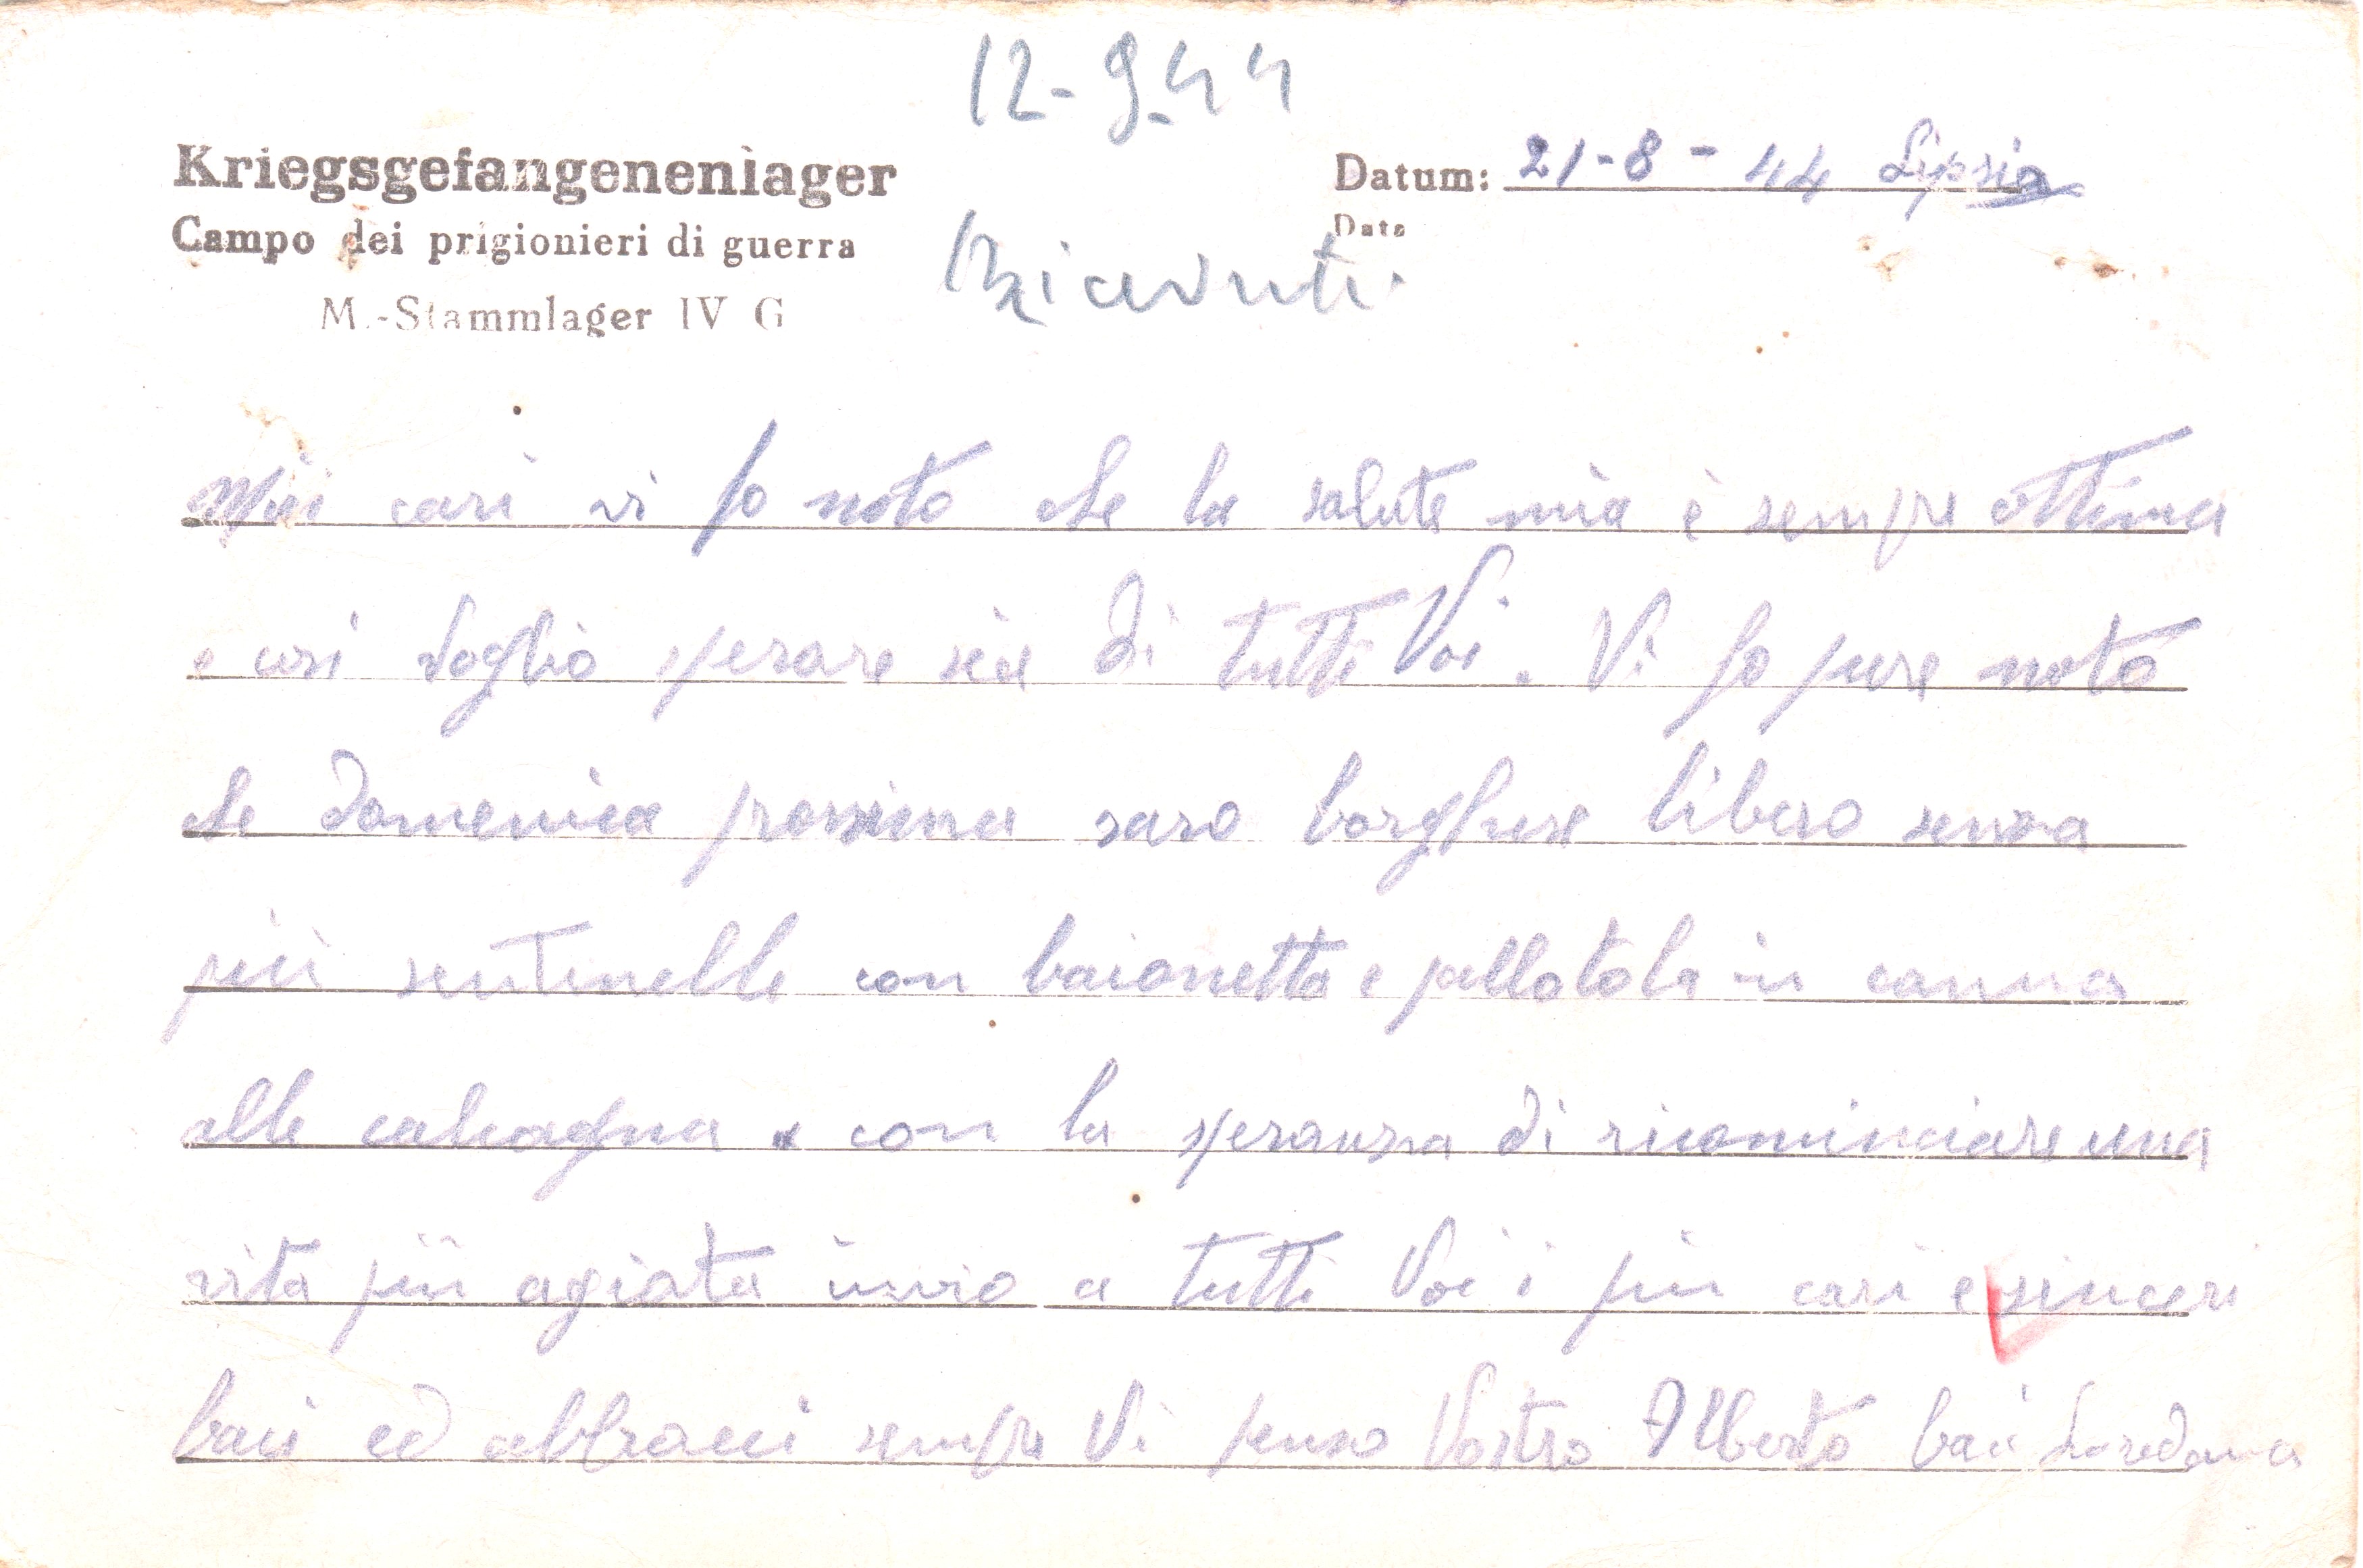 12-9-44
Kriegsgefangenenlager
Datum: 21-8-44 Lipsia
Campo dei prigionieri di guerra
Data
Ricevuta
M.-Stammlager IV G
Miei cari vi fo noto che la salute mia è sempre ottima
e cosi voglio sperare sia di tutti Voi. Vi fo pure noto
che domenica prossima saro borghese libero senza
più sentinelle con baionetta e pallotola in canna
alle calcagna e con la speranza di ricominciare una
vita più agiata invio a tutti Voi i più cari e sinceri
baci ed abbracci sempre Vi penso Vostro Alberto baci Loredana